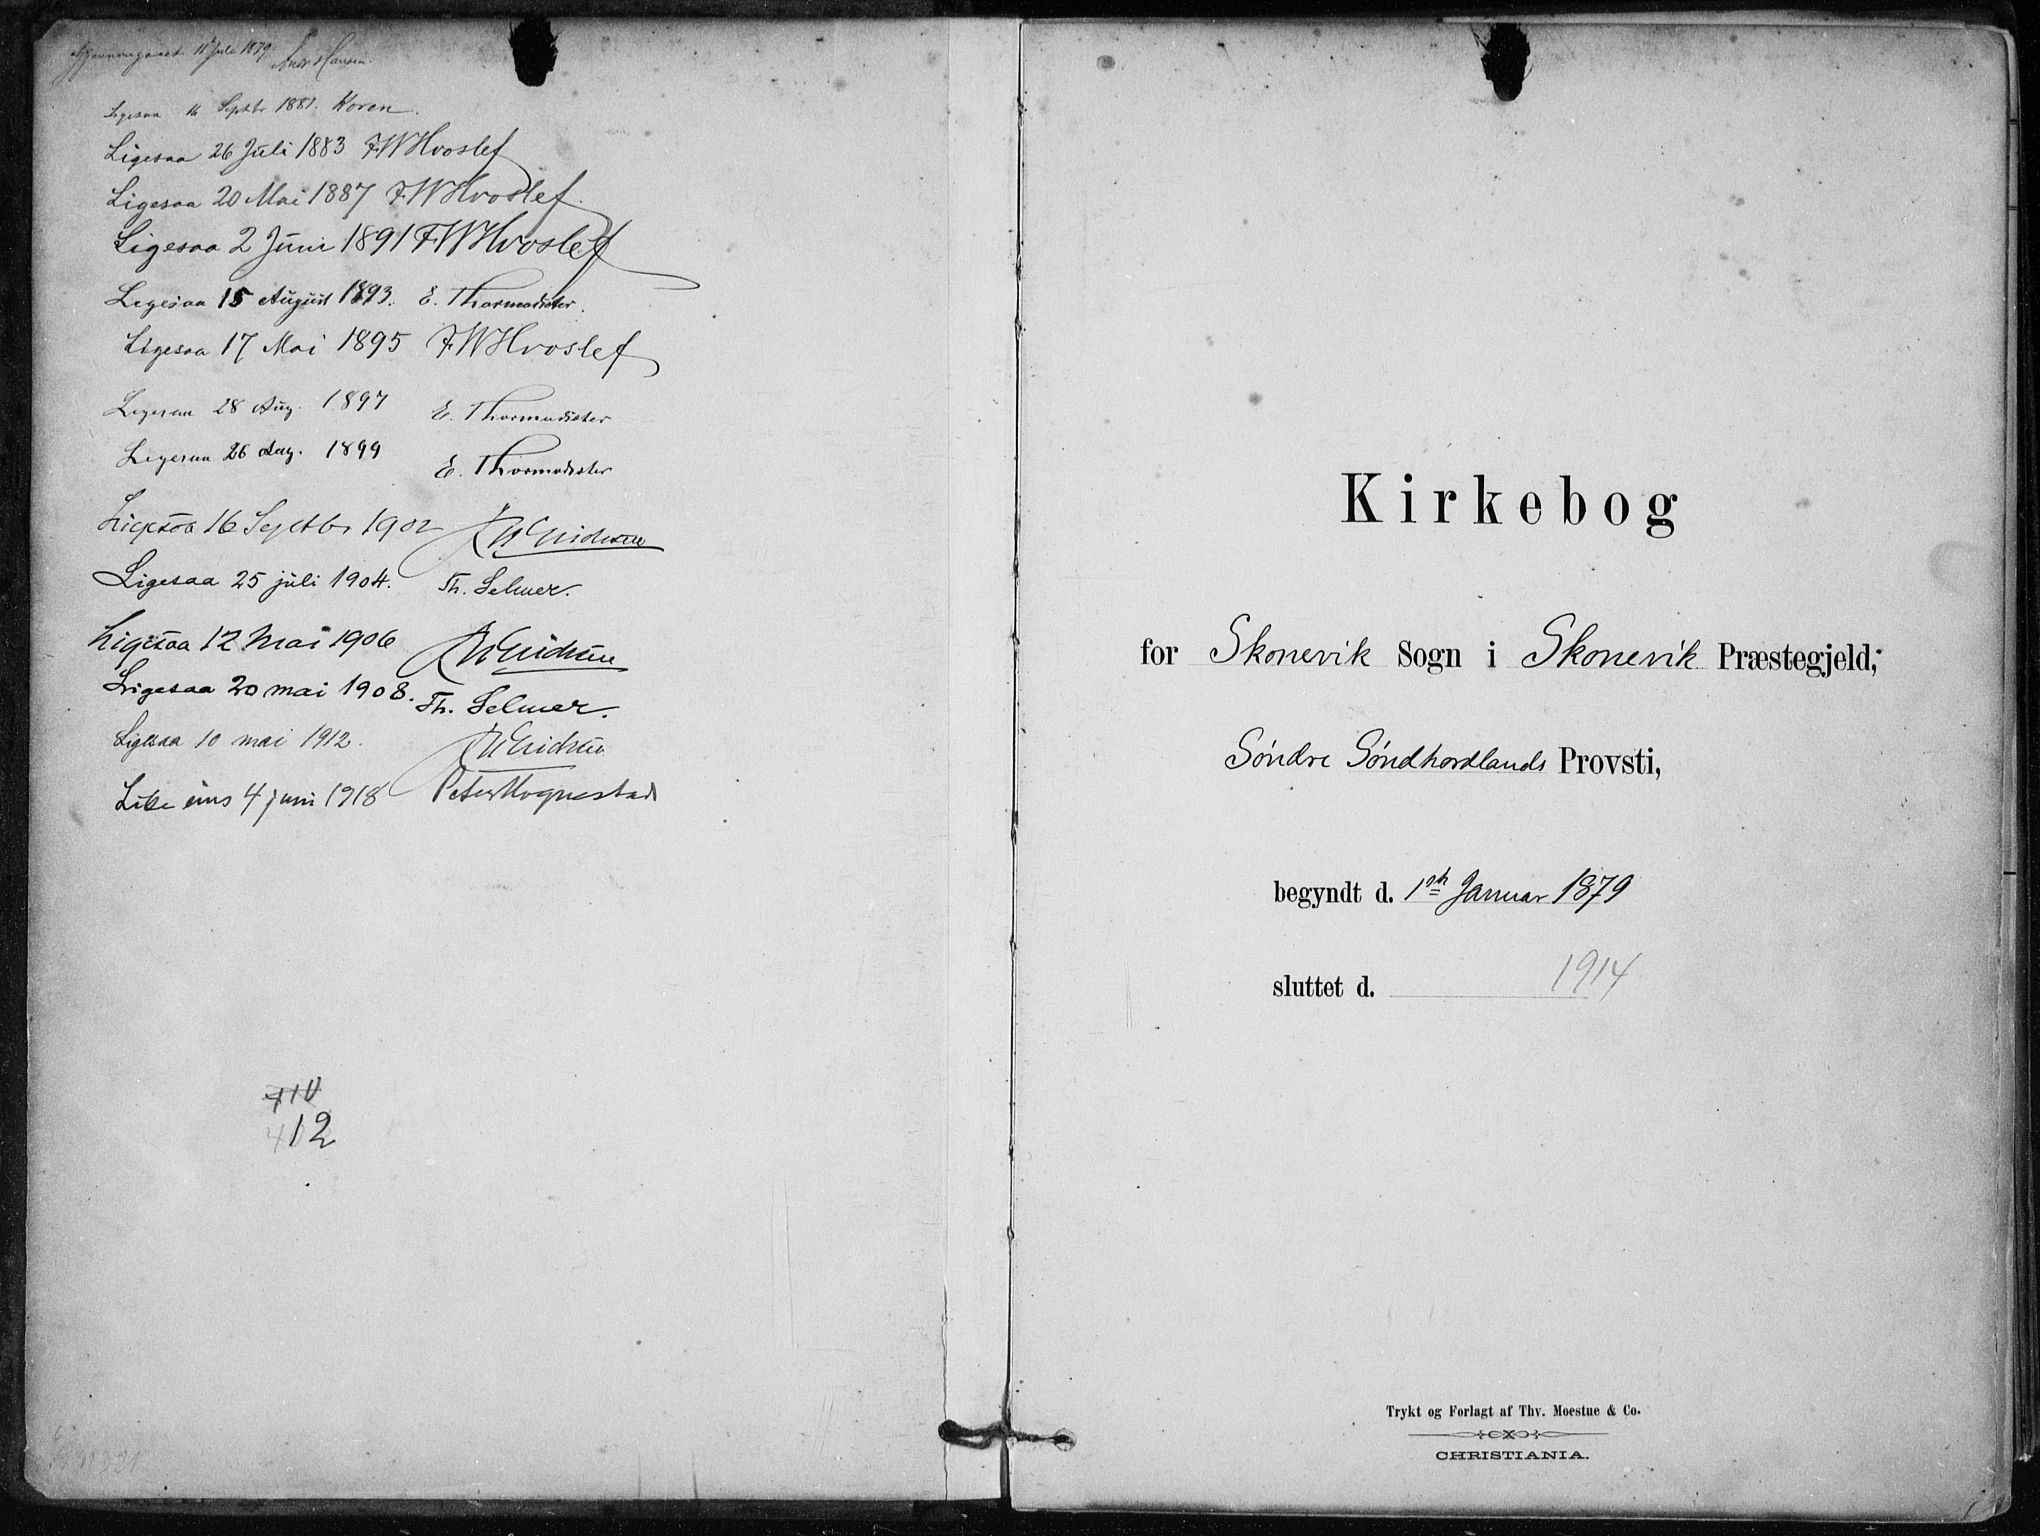 Gjennemgaaet 11 Juli 1879 Andr Hansen.
Ligesaa 16 Septbr 1881. Koren.
Ligesaa 26 Juli 1883 FWHvoslef
Ligesaa 20 Mai 1887 FWHvoslef.
Ligesaa 2 Juni 1891 FWHvoslef
Legesaa 15 August 1893. E. Thormodsæter.
Ligesaa 17 Mai 1895 FWHvoslef
Legesaa 28 Aug. 1897 E. Thormodsæter
Legesaa 26 Aug. 1899 E. Thormodsæter
Ligesaa 16 Septbr 1902
Ligesaa 25 juli 1904. Th. Selmer.
Ligesaa 12 Mai 1906
Ligesaa 20 mai 1908. Th. Selmer.
Ligesaa 10 mai 1912.
Like eins 4 juni 1918 Peter Hognestad
412
Kirkebog
for Skonevik Sogn i Skonevik Præstegjeld,
Søndre Søndhordlands Provsti,
begyndt d. 1ste Januar 1879
sluttet d. 1914
Trykt og Forlagt af Thv. Moestue & Co.
CHRISTIANIA.